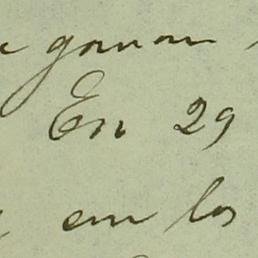 ganan
En 29
em los